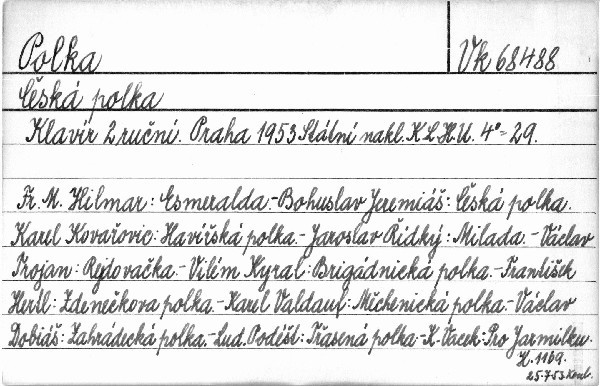 Polka Vk 68488
Česká polka
Klavír 2 ruční. Praha 1953 Státní nakl. K L H. U. 4° - 29.
Fr. M. Hilmar: Esmeralda. - Bohuslav Jeremiáš: Česká polka.
Karel Kovařovic: Havířská polka. - Jaroslav Řidký: Milada. - Václav
Trojan: Rejdovačka. - Vilém Kyral: Brigádnická polka. - František
Hertl: Zdenečkova polka. - Karel Valdauf: Míchenická polka. - Václav
Dobiáš: Zahrádecká polka. - Lud. Podéšť: Třasená polka - K. Vacek: Pro Jarmilku.
H. 1169.
25.7.53